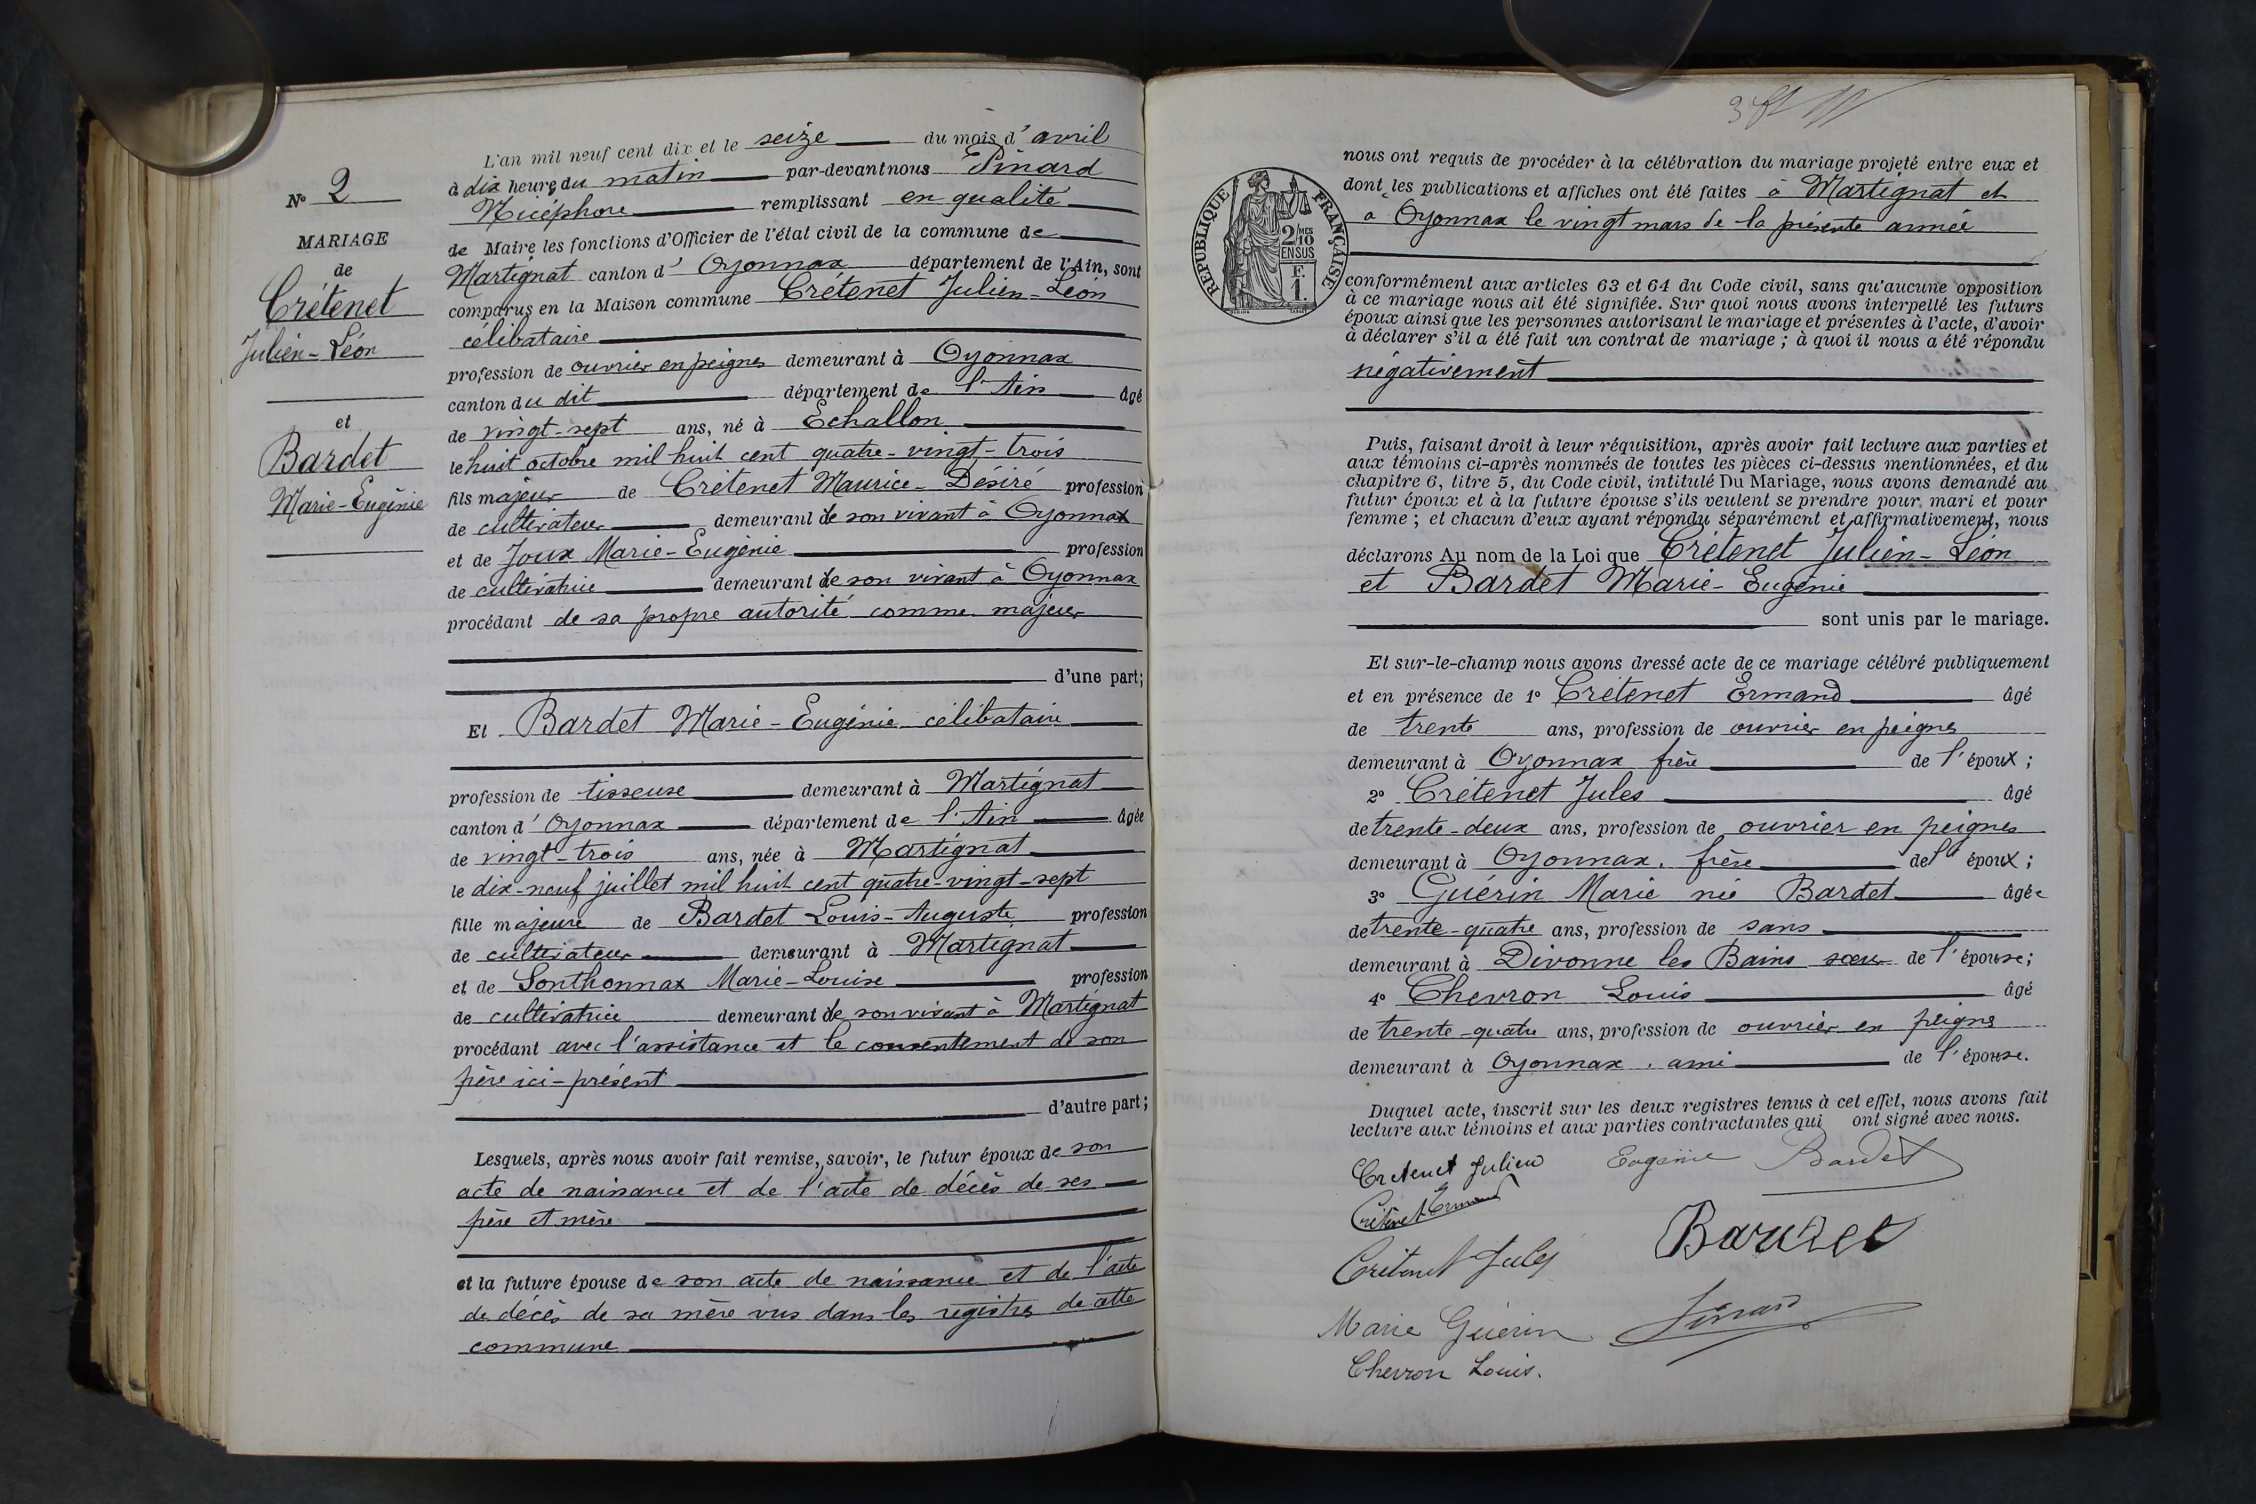 N° 2
MARIAGE
de
Crétenet
Julien-Léon
et
Bardet
Marie-Eugénie
L'an mil neuf cent dix et le seize du mois d'avril
à dix heures du matin par-devant nous Pinard
Nicéphore remplissant en qualité
de Maire les fonctions d'Officier de l'état civil de la commune de
Martignat canton d'Oyonnax département de l'Ain, sont
comparus en la Maison commune Crétenet Julien-Léon
célibataire
profession de ouvrier en peignes demeurant à Oyonnax
canton du dit département de l'Ain âgé
de vingt-sept ans, né à Echallon
le huit octobre mil huit cent quatre-vingt-trois
fils majeur de Crétenet Maurice-Désiré profession
de cultivateur demeurant de son vivant à Oyonnax
et de Joux Marie-Eugénie profession
de cultivatrice demeurant de son vivant à Oyonnax
procédant de sa propre autorité comme majeur
d'une part;
Et Bardet Marie-Eugénie célibataire
profession de tisseuse demeurant à Martignat
canton d'Oyonnax département de l'Ain âgée
de vingt-trois ans, née à Martignat
le dix-neuf juillet mil huit cent quatre-vingt-sept
fille majeure de Bardet Louis-Auguste profession
de cultivateur demeurant à Martignat
et de Sonthonnax Marie-Louise profession
de cultivatrice demeurant de son vivant à Martignat
procédant avec l'assistance et le consentement de son
père ici-présent
d'autre part;
Lesquels, après nous avoir fait remise, savoir, le futur époux de son
acte de naissance et de l'acte de décès de ses
père et mère
et la future épouse de son acte de naissance et de l'acte
de décès de sa mère vus dans les registres de cette
commune
RÉPUBLIQUE FRANÇAISE
2/10 MES
EN SUS
F.
1.
nous ont requis de procéder à la célébration du mariage projeté entre eux et
dont les publications et affiches ont été faites à Martignat et
à Oyonnax le vingt mars de la présente année
conformément aux articles 63 et 64 du Code civil, sans qu'aucune opposition
à ce mariage nous ait été signifiée. Sur quoi nous avons interpellé les futurs
époux ainsi que les personnes autorisant le mariage et présentes à l'acte, d'avoir
à déclarer s'il a été fait un contrat de mariage ; à quoi il nous a été répondu
négativement
Puis, faisant droit à leur réquisition, après avoir fait lecture aux parties et
aux témoins ci-après nommés de toutes les pièces ci-dessus mentionnées, et du
chapitre 6, titre 5, du Code civil, intitulé Du Mariage, nous avons demandé au
futur époux et à la future épouse s'ils veulent se prendre pour mari et pour
femme ; et chacun d'eux ayant répondu séparément et affirmativement, nous
déclarons Au nom de la Loi que Crétenet Julien-Léon
et Bardet Marie-Eugénie
sont unis par le mariage.
Et sur-le-champ nous avons dressé acte de ce mariage célébré publiquement
et en présence de 1° Crétenet Ermand âgé
de trente ans, profession de ouvrier en peignes
demeurant à Oyonnax frère de l'époux ;
2° Crétenet Jules âgé
de trente-deux ans, profession de ouvrier en peignes
demeurant à Oyonnax. frère de l'époux ;
3° Guérin Marie née Bardet âgée
de trente-quatre ans, profession de sans
demeurant à Divonne les Bains sœur de l'épouse;
4° Chevron Louis âgé
de trente-quatre ans, profession de ouvrier en peignes
demeurant à Oyonnax. ami de l'épouse.
Duquel acte, inscrit sur les deux registres tenus à cet effet, nous avons fait
lecture aux témoins et aux parties contractantes qui ont signé avec nous.
Cretenet Julien Eugénie Bardet
Crétenet Ermand
Bardet
Crétenet Jules
Marie Guérin Pinard
Chevron Louis.